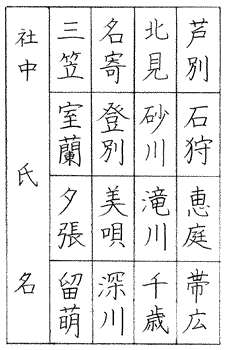 芦別 石狩 恵庭 帯広
北見 砂川 滝川 千歳
名寄 登別 美唄 深川
三笠 室蘭 夕張 留萌
社中 氏名